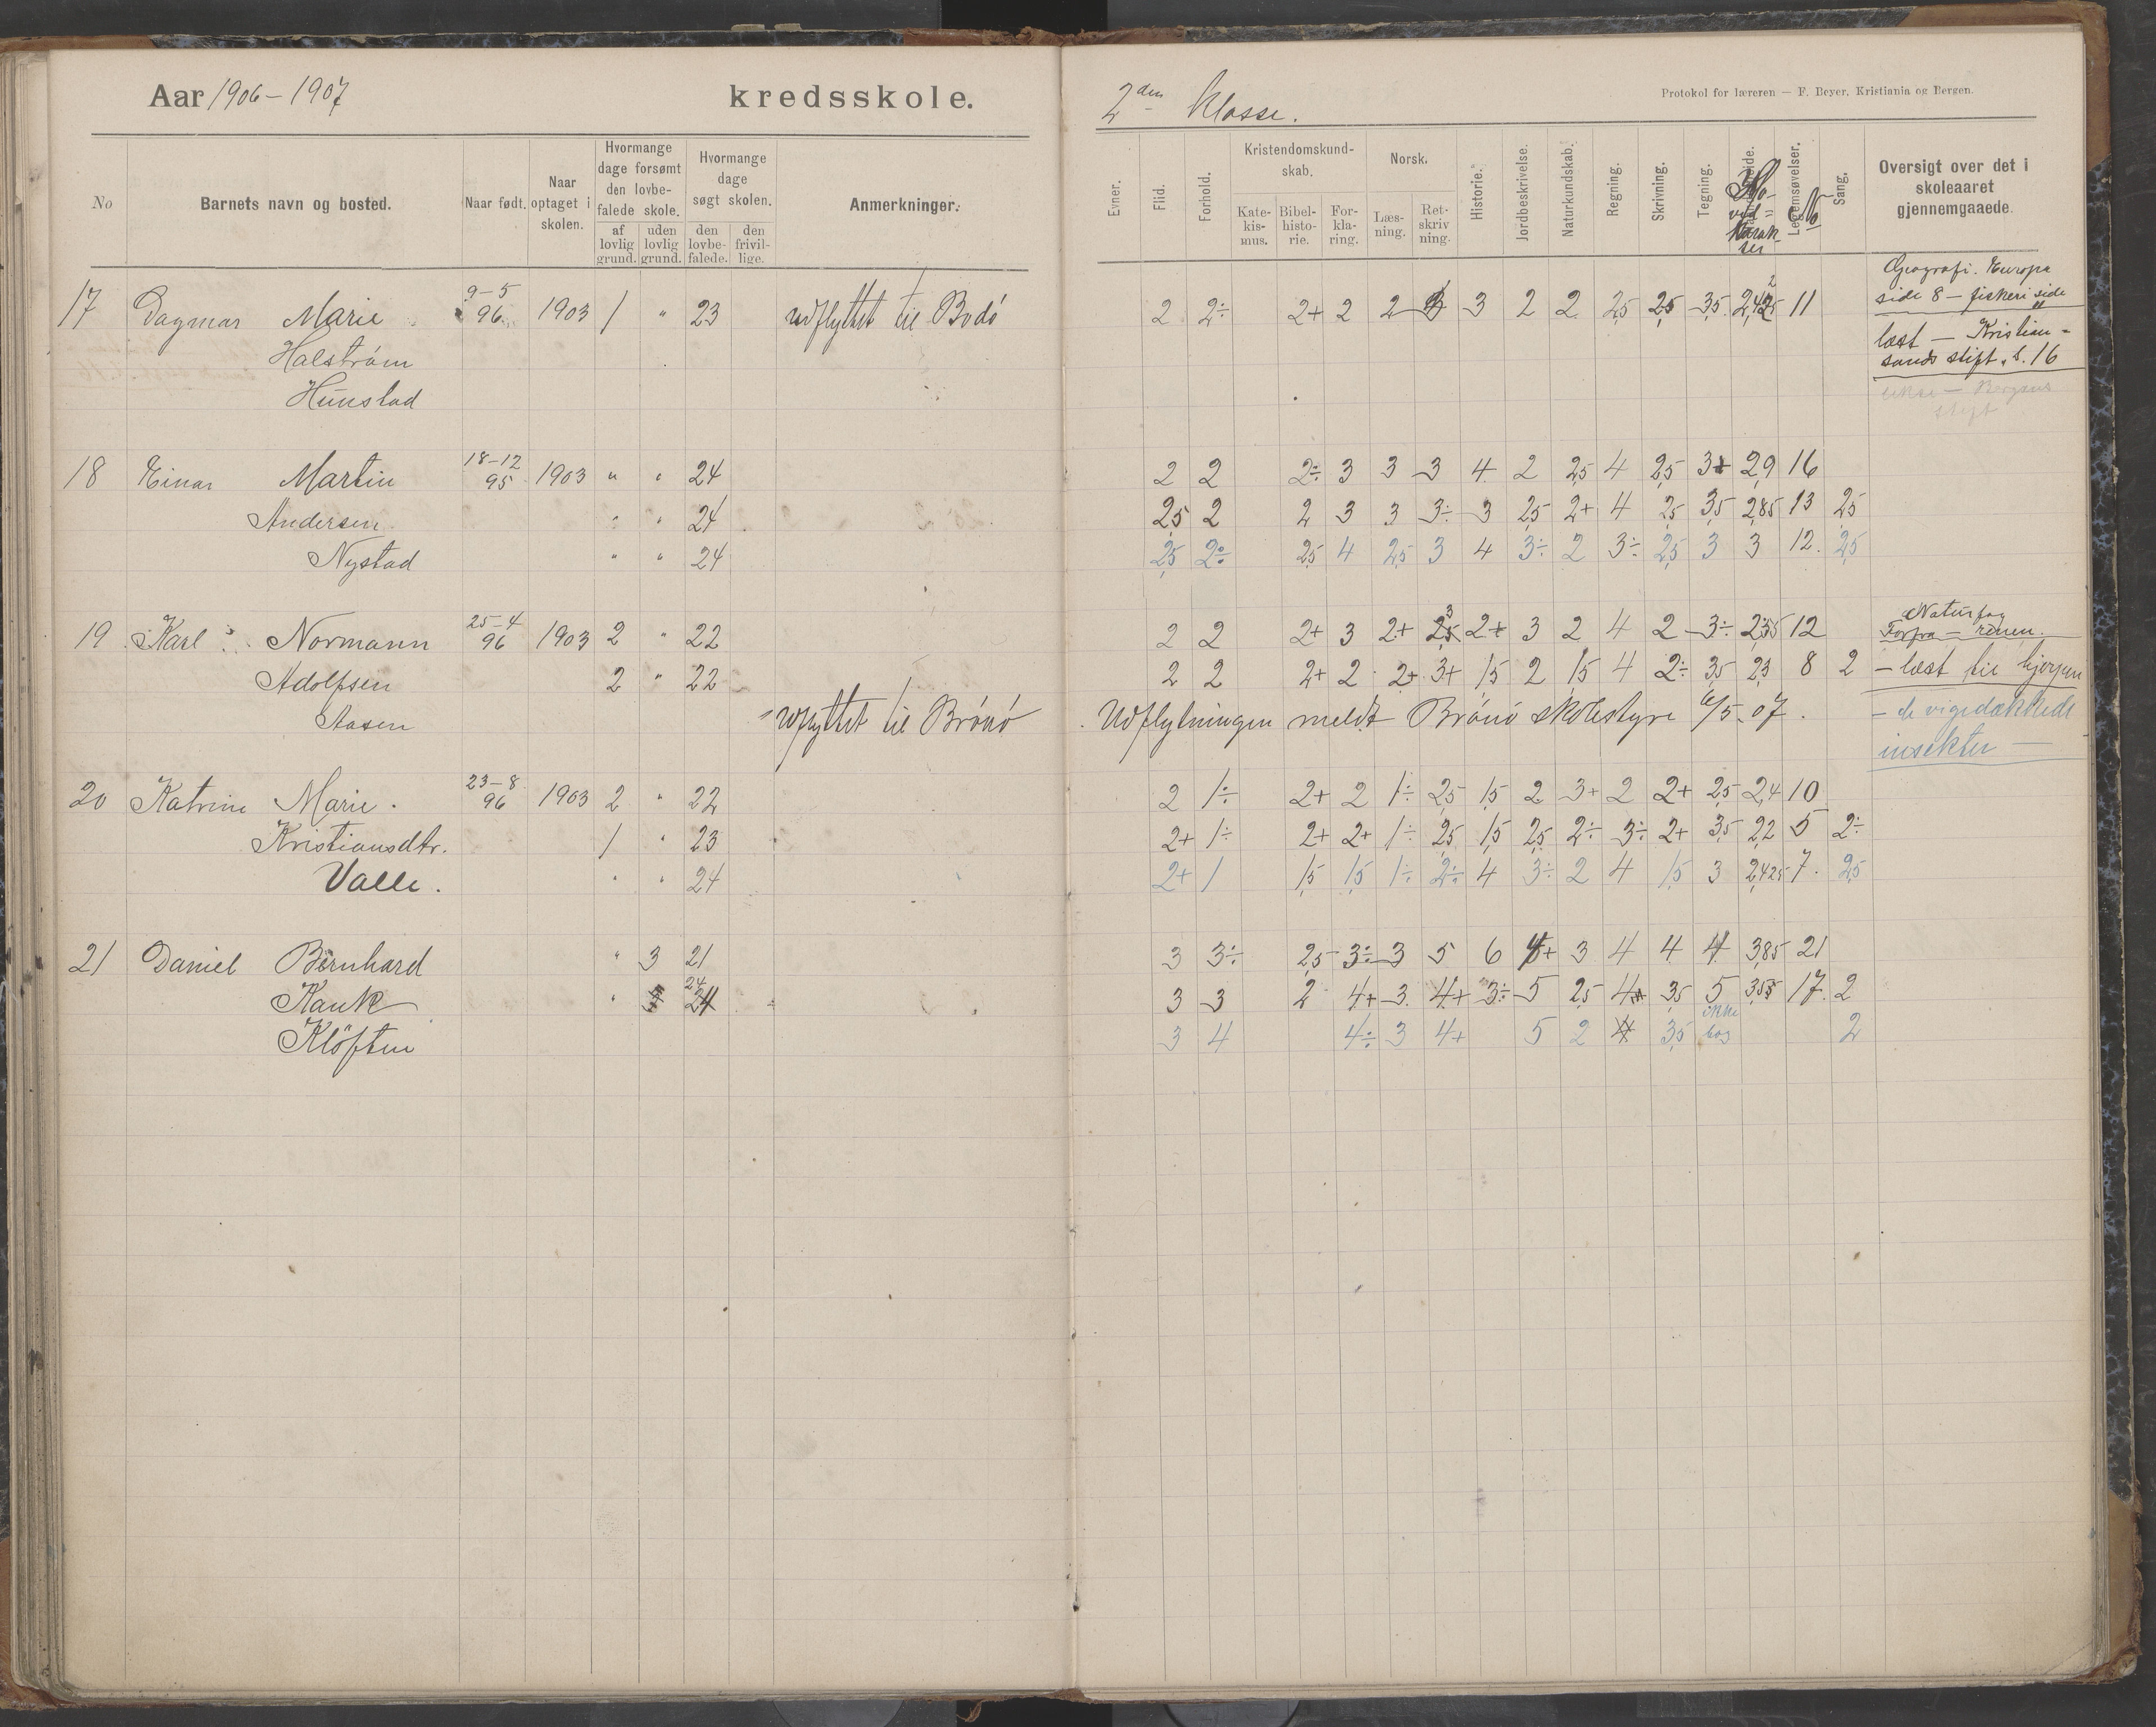 Aar 1906-1907 kredsskole.
2den Klasse.
Protokol for læreren — F. Beyer, Kristiania og Bergen.
No
Barnets navn og bosted.
Naar født.
Naar optaget i skolen.
Hvormange dage forsømt den lovbefalede skole.
af lovlig grund.
uden lovlig grund.
Hvormange dage søgt skolen.
den lovbefalede.
den frivillige.
Anmerkninger.
Evner.
Flid.
Forhold.
Kristendomskundskab.
Katekismus.
Bibelhistorie.
Forklaring.
Norsk.
Læsning.
Retskrivning.
Historie.
Jordbeskrivelse.
Naturkundskab.
Regning.
Skrivning.
Tegning.
Hovedkarakter
Legemsøvelser.
№
Sang.
Oversigt over det i skoleaaret gjennemgaaede.
17 Dagmar Marie 9-5 96 1903 1 " 23 udflyttet til Bodö 2 2÷ 2+ 2 2 3 2 2 2,5 2,5 3,5 11
Halström
Hunstad
Geografi. Europa
side 8 — fiskeri side
læst — Kristian-
sands stift, s. 16
Bergens
stift
18 Einar Martin 18-12 95 1903 " " 24 2 2 2÷ 3 3 3 4 2 2,5 4 2,5 3+ 2,9 16
Andersen " " 24 2,5 2 2 3 3 3÷ 3 2,5 2+ 4 2,5 3,5 2,85 13 2,5
Nystad " " 24 2,5 2÷ 2,5 4 2,5 3 4 3÷ 2 3÷ 2,5 3 3 12. 2,5
19 Karl Normann 25-4 96 1903 2 " 22 2 2 2+ 3 2+ 3 2+ 3 2 4 2 3÷ 2,35 12
Adolfsen 2 " 22 2 2 2+ 2 2+ 3+ 1,5 2 1,5 4 2÷ 3,5 2,3 8 2
Aasen udflyttet til Brönö Udflytningen meldt Brönö skolestyre 6/5-07.
Naturfag
Forfra — renen.
— læst til hjerpen
— de vigedækkede
insekter —
20 Katrine Marie. 23-8 96 1903 2 " 22 2 1÷ 2+ 2 1÷ 2,5 1,5 2 3+ 2 2+ 2,5 2,4 10
Kristiansdtr. 1 " 23 2+ 1÷ 2+ 2+ 1÷ 2,5 1,5 2,5 2÷ 3÷ 2+ 3,5 2,2 5 2÷
Valle. " " 24 2+ 1 1,5 1,5 1÷ 2÷ 4 3÷ 2 4 1,5 3 2,425 7. 2,5
21 Daniel Bernhard " 3 21 3 3÷ 2,5 3÷ 3 5 6 4+ 3 4 4 4 3,85 21
Kauk " 24 3 3 2 4+ 3 4+ 3÷ 5 2,5 4 3,5 5 3,55 17. 2
Klöften 3 4 4÷ 3 4+ 5 2 4 3,5 ikke bog 2